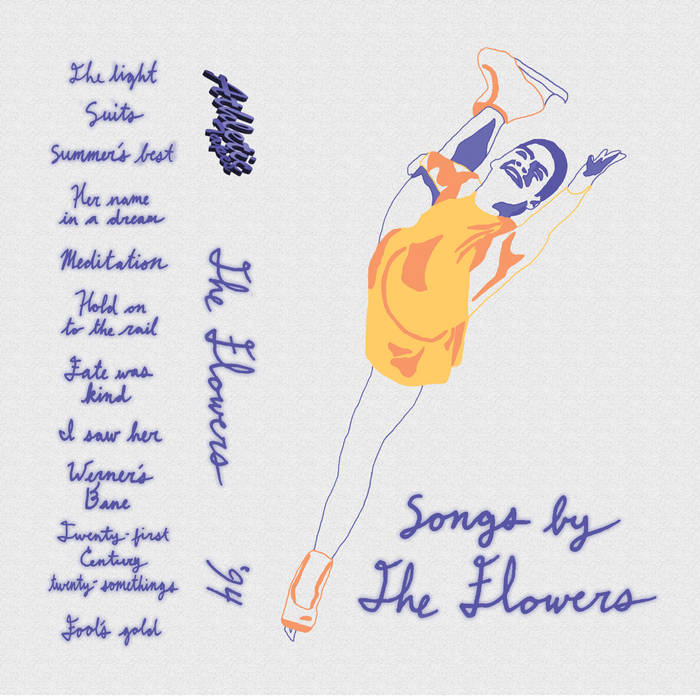 The light
Suits
Summer's best
Her name
in a dream
Meditation
Hold on
to the rail
Fate was
kind
I saw her
Werner's
Bane
Twenty-first
Century
twenty-somethings
Fool's gold
The Flowers
'94
Songs by
The Flowers